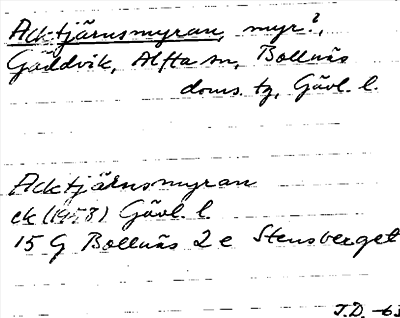 Acktjärnsmyran, myr?,
Gäddvik, Alfta sn, Bollnäs
doms. tg, Gävl. l.
Acktjärnsmyran
ek (1958) Gävl. l
15 G Bollnäs 2 e Stensberget
J.D. -63